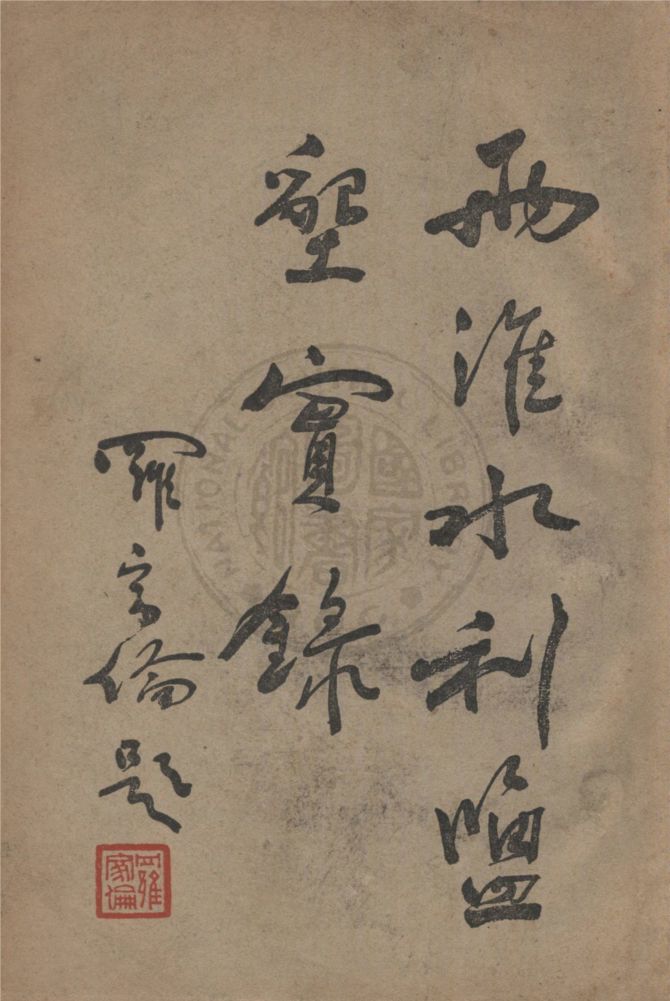 兩淮水利鹽
墾實錄
羅家倫題
羅家倫
NATIONAL LIBRARY
國家圖書館